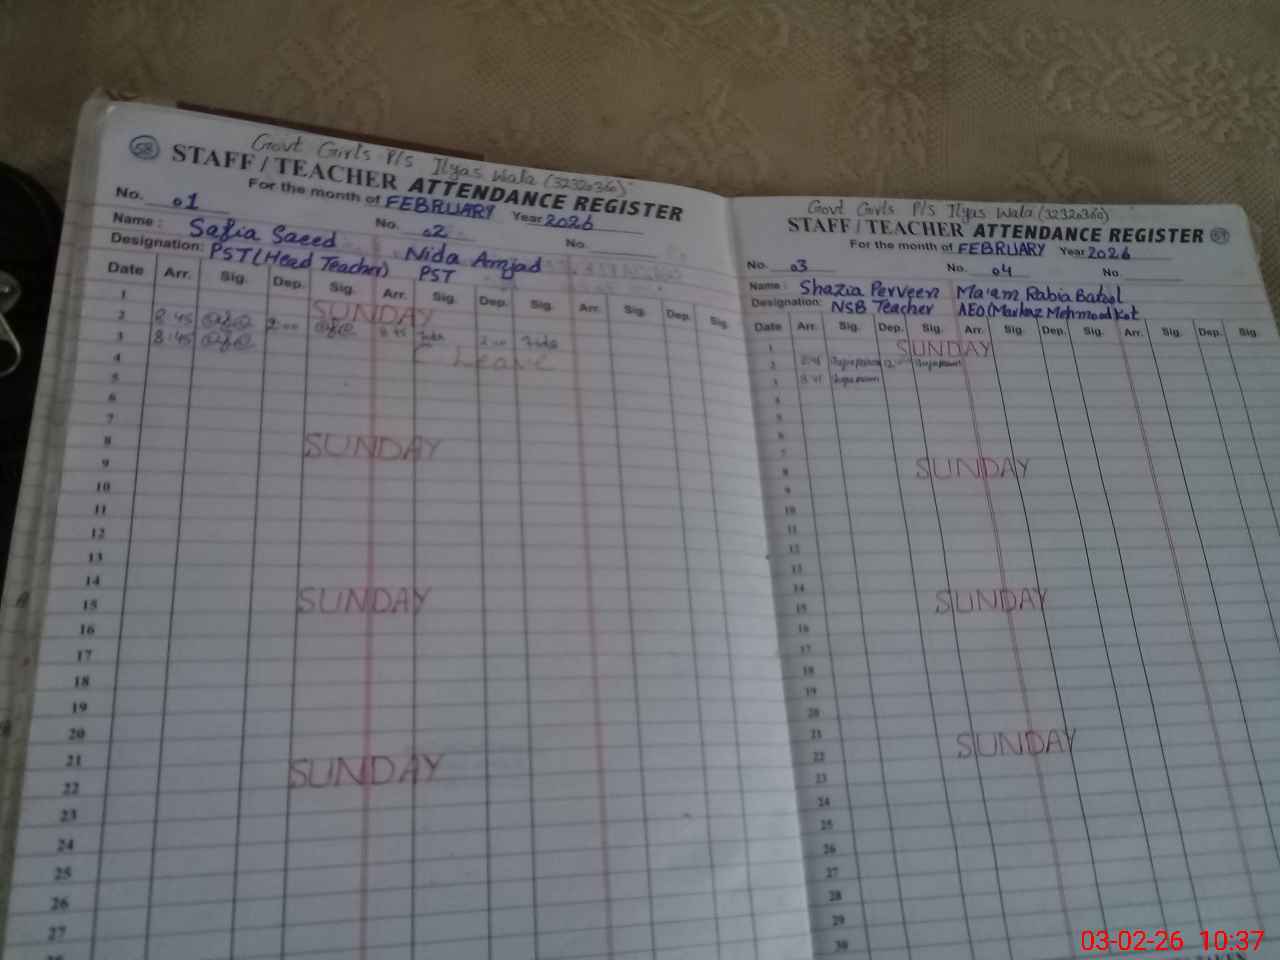 58
Govt Girls P/s Ilyas Wala (32320360)
STAFF / TEACHER ATTENDANCE REGISTER
For the month of FEBRUARY Year 2026
No. 01 No. 02 No.
Name : Safia Saeed Nida Amjad
Designation: PST (Head Teacher) PST
Date Arr. Sig. Dep. Sig. Arr. Sig. Dep. Sig. Arr. Sig. Dep. Sig.
1 SUNDAY
2 8:45 2:00 8:45 2:00
3 8:45 Leave
4
5
6
7
8 SUNDAY
9
10
11
12
13
14
15 SUNDAY
16
17
18
19
20
21
22 SUNDAY
23
24
25
26
27
Govt Girls P/s Ilyas Wala (32320360)
STAFF / TEACHER ATTENDANCE REGISTER 59
For the month of FEBRUARY Year 2026
No. 03 No. 04 No.
Name : Shazia Perveen Ma'am Rabia Batool
Designation: NSB Teacher AEO (Markaz Mehmood Kot
Date Arr. Sig. Dep. Sig. Arr. Sig. Dep. Sig. Arr. Sig. Dep. Sig.
1 SUNDAY
2 8:45
3 8:45
4
5
6
7
8 SUNDAY
9
10
11
12
13
14
15 SUNDAY
16
17
18
19
20
21
22 SUNDAY
23
24
25
26
27
28
29
30
03-02-26 10:37